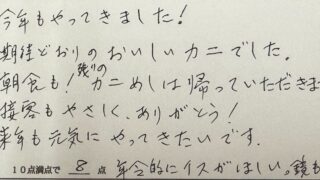 今年もやってきました!
期待どおりのおいしいカニでした。
朝食も!残りのカニめしは帰っていただきま
接客もやさしく、ありがとう!
来年も元気にやってきたいです。
10点満点で 8 点 年令的にイスがほしい。鏡も